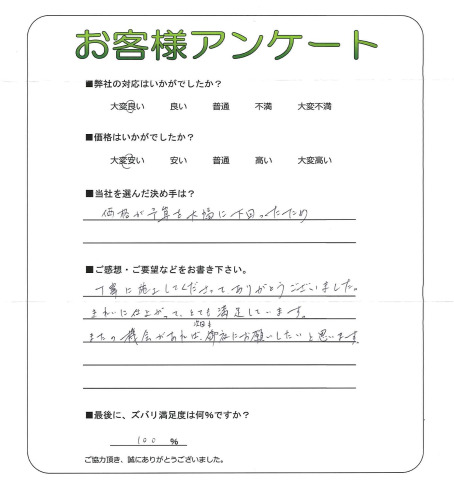 お客様アンケート
■弊社の対応はいかがでしたか？
大変良い 良い 普通 不満 大変不満
■価格はいかがでしたか？
大変安い 安い 普通 高い 大変高い
■当社を選んだ決め手は？
価格が予算を大幅に下回ったため
■ご感想・ご要望などをお書き下さい。
丁寧に施工してくださってありがとうございました。
きれいに仕上がって、とても満足しています。
次回も
またの機会があれば、御社にお願いしたいと思います。
■最後に、ズバリ満足度は何％ですか？
100 %
ご協力頂き、誠にありがとうございました。